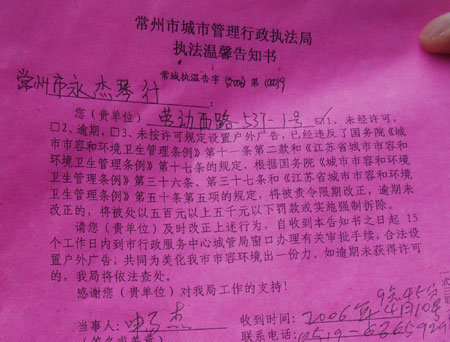 常州市城市管理行政执法局
执法温馨告知书
常城执温告字 [2006] 第
常州市永杰琴行
您（贵单位）劳动西路537-1号 □1、未经许可，
□2、逾期，□3、未按许可规定设置户外广告，已经违反了国务院《城
市市容和环境卫生管理条例》第十一条第二款和《江苏省城市市容和
环境卫生管理条例》第十七条的规定，根据国务院《城市市容和环境
卫生管理条例》第三十六条、第三十七条和《江苏省城市市容和环境
卫生管理条例》第五十条第五项的规定，将被责令限期改正，逾期未
改正的，将被处以五百元以上五千元以下罚款或实施强制拆除。
请您（贵单位）及时改正上述行为，自收到本告知书之日起 15
个工作日内到市行政服务中心城管局窗口办理有关审批手续，合法设
置户外广告；共同为美化我市市容环境出一份力，如逾期未获得许可
的，我局将依法查处。
感谢您（贵单位）对我局工作的支持！
9点45分
当事人： 收到时间：2006年4月10号
（签名或盖章） 联系电话：0519-